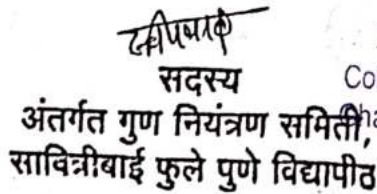 सदस्य
Co
अंतर्गत गुण नियंत्रण समिती,
सावित्रीबाई फुले पुणे विद्यापीठ